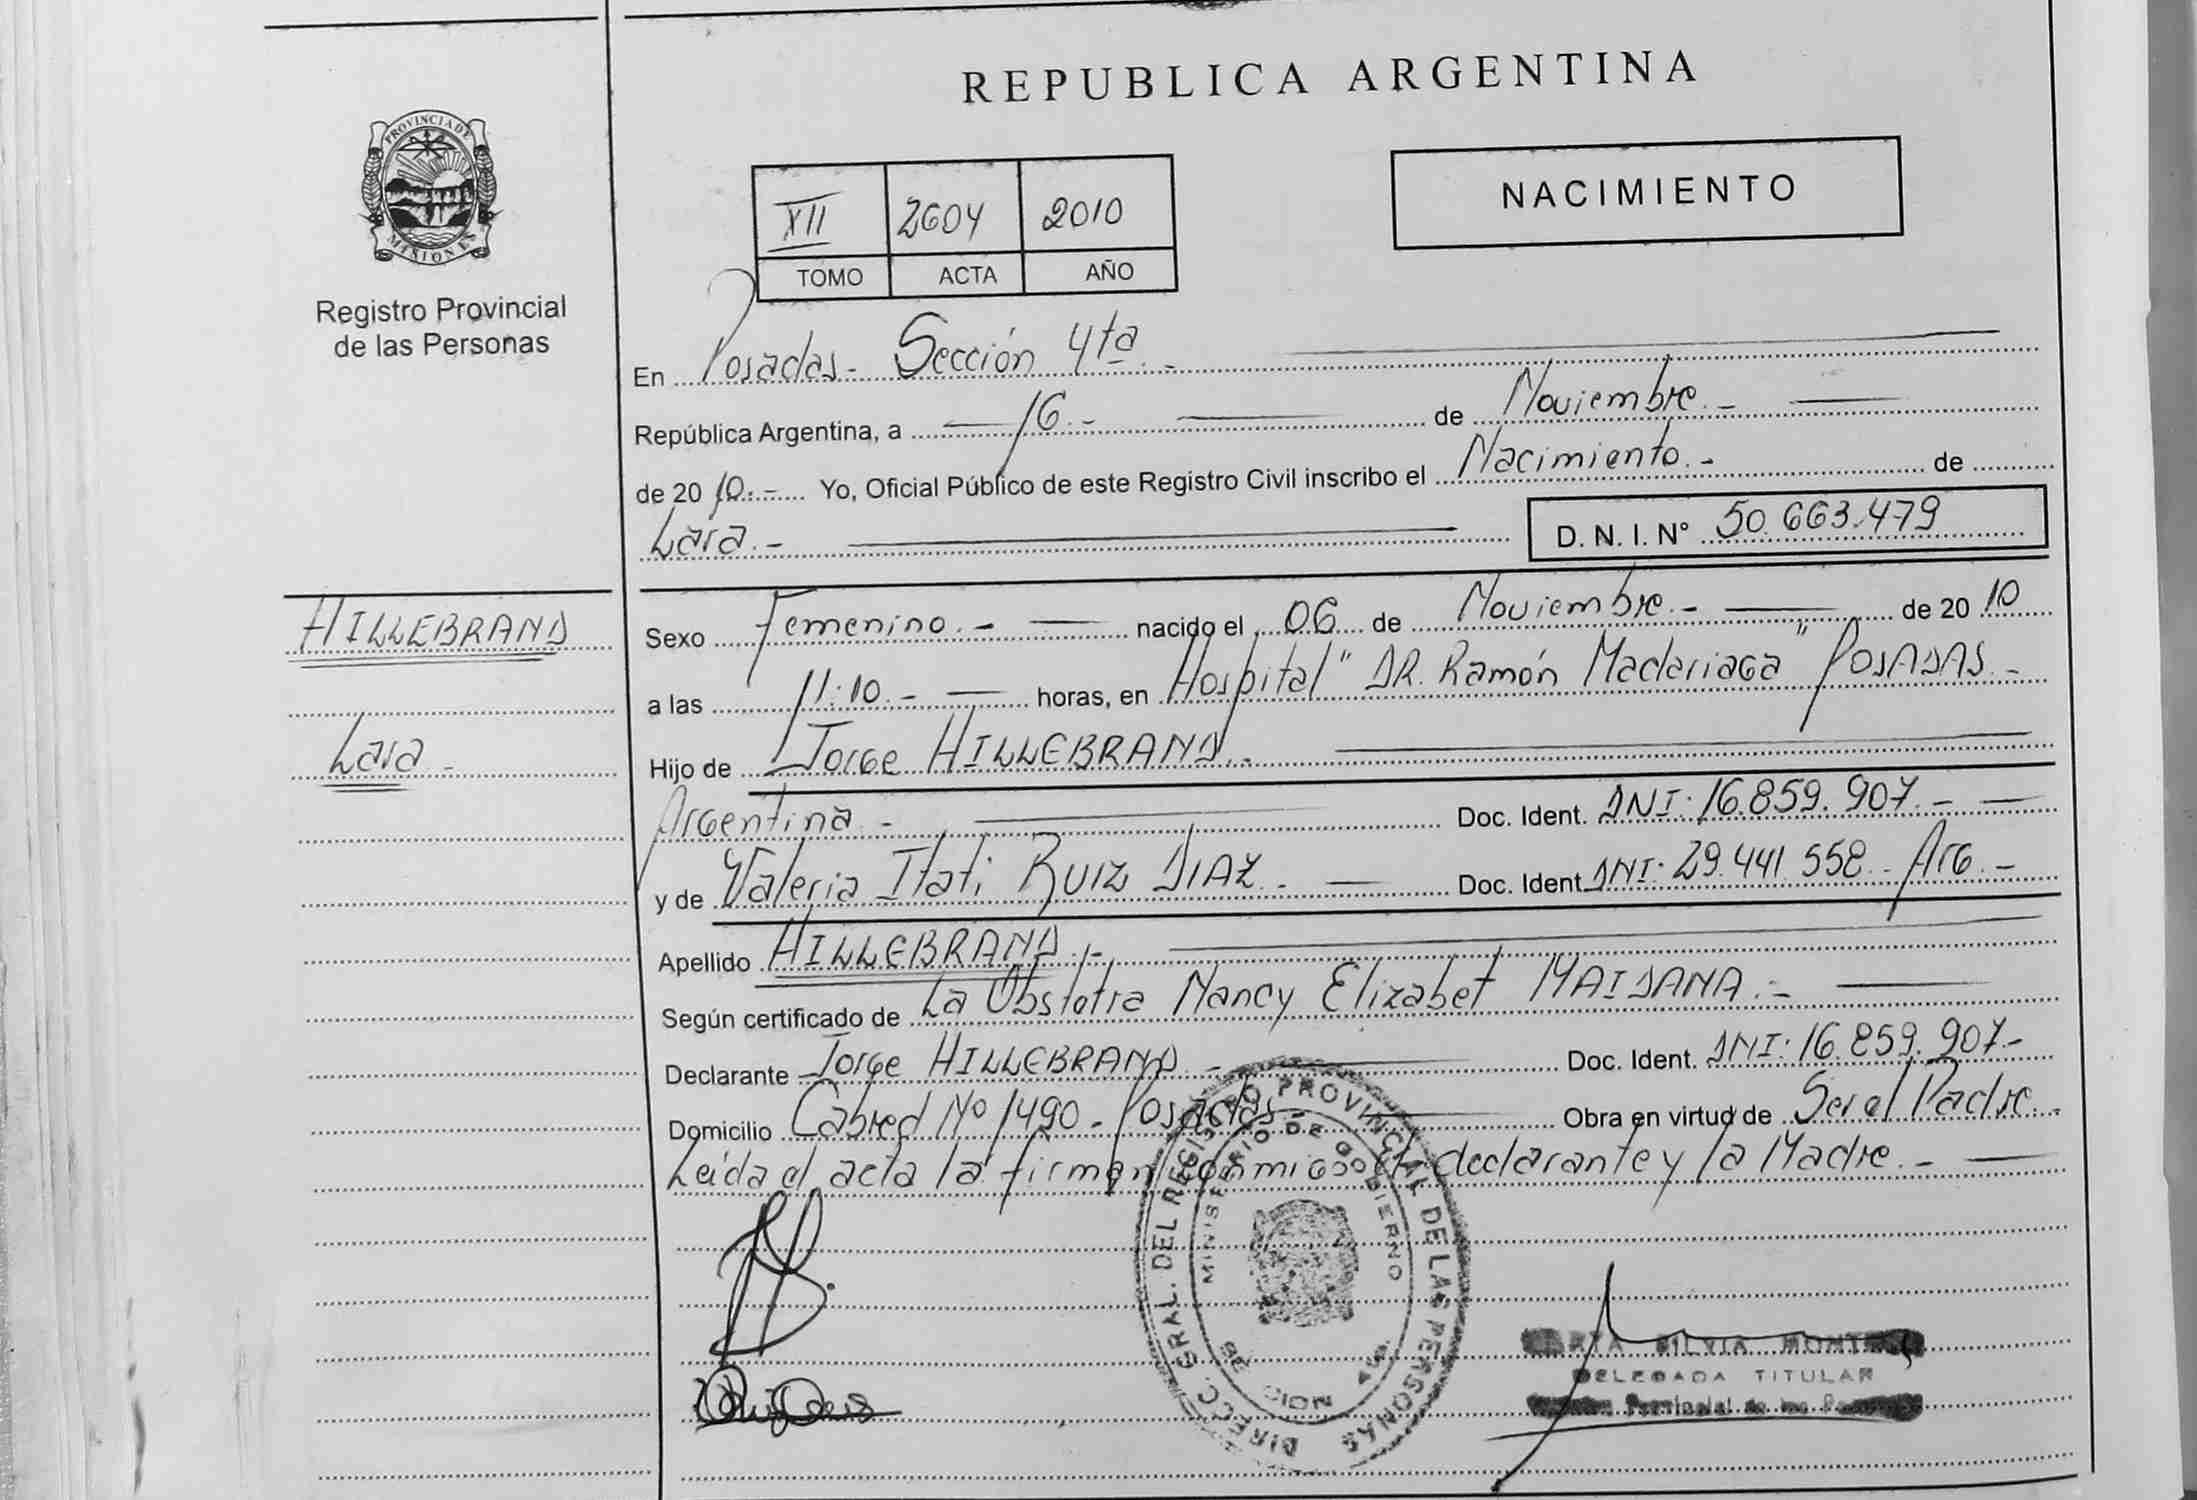 REPUBLICA ARGENTINA
PROVINCIA DE MISIONES
Registro Provincial
de las Personas
NACIMIENTO
XII 2604 2010
TOMO ACTA AÑO
En Posadas - Sección 4ta -
República Argentina, a 16.- de Noviembre.-
de 2010.- Yo, Oficial Público de este Registro Civil inscribo el Nacimiento.- de
Lara.- D. N. I. N° 50.663.479
HILLEBRAND
Lara -
Sexo Femenino.- nacido el 06 de Noviembre.- de 2010
a las 11:10.- horas, en Hospital "DR. Ramón Madariaga" POSADAS.-
Hijo de Jorge HILLEBRAND.-
Argentina.- Doc. Ident. DNI: 16.859.907.-
y de Valeria Itati RUIZ DIAZ.- Doc. Ident DNI: 29.441.558.- Arg.-
Apellido HILLEBRAND.-
Según certificado de La Obstetra Nancy Elizabet MAIDANA.-
Declarante Jorge HILLEBRAND.- Doc. Ident. DNI: 16.859.907.-
Domicilio Cabred Nº 1490 - Posadas.- Obra en virtud de Ser el Padre.-
Leída el acta la firman conmigo el declarante y la Madre.-
DIRECC. GRAL. DEL REGISTRO PROVINCIAL DE LAS PERSONAS
MINISTERIO DE GOBIERNO
SILVIA
DELEGADA TITULAR
Provincial de las